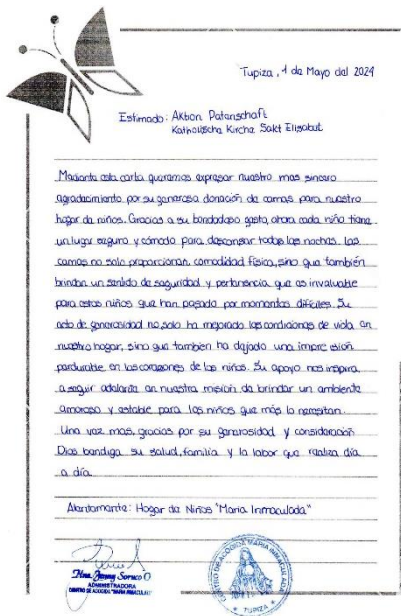 Tupiza, 1 de Mayo del 2024
Estimado: Aktion Patenschaft
Katholische Kirche Sakt Elisabet
Mediante esta carta queremos expresar nuestro mas sincero
agradecimiento por su generosa donación de camas para nuestro
hogar de niños. Gracias a su bondadoso gesto, ahora cada niño tiene
un lugar seguro y cómodo para descansar todas las noches. Las
camas no solo proporcionan comodidad física, sino que también
brindan un sentido de seguridad y pertenencia que es invaluable
para estos niños que han pasado por momentos difíciles. Su
acto de generosidad no solo ha mejorado las condiciones de vida en
nuestro hogar, sino que tambien ha dejado una impresión
perdurable en los corazones de los niños. Su apoyo nos inspira
a seguir adelante en nuestra misión de brindar un ambiente
amoroso y estable para los niños que más lo necesitan.
Una vez mas, gracias por su generosidad y consideración
Dios bendiga su salud, familia y la labor que realiza día
a día.
Atentamente: Hogar de Niños "Maria Inmaculada"
Hna. Jenny Soruco O
ADMINISTRADORA
CENTRO DE ACOGIDA "MARIA INMACULADA"
CENTRO DE ACOGIDA MARIA INMACULADA
TUPIZA